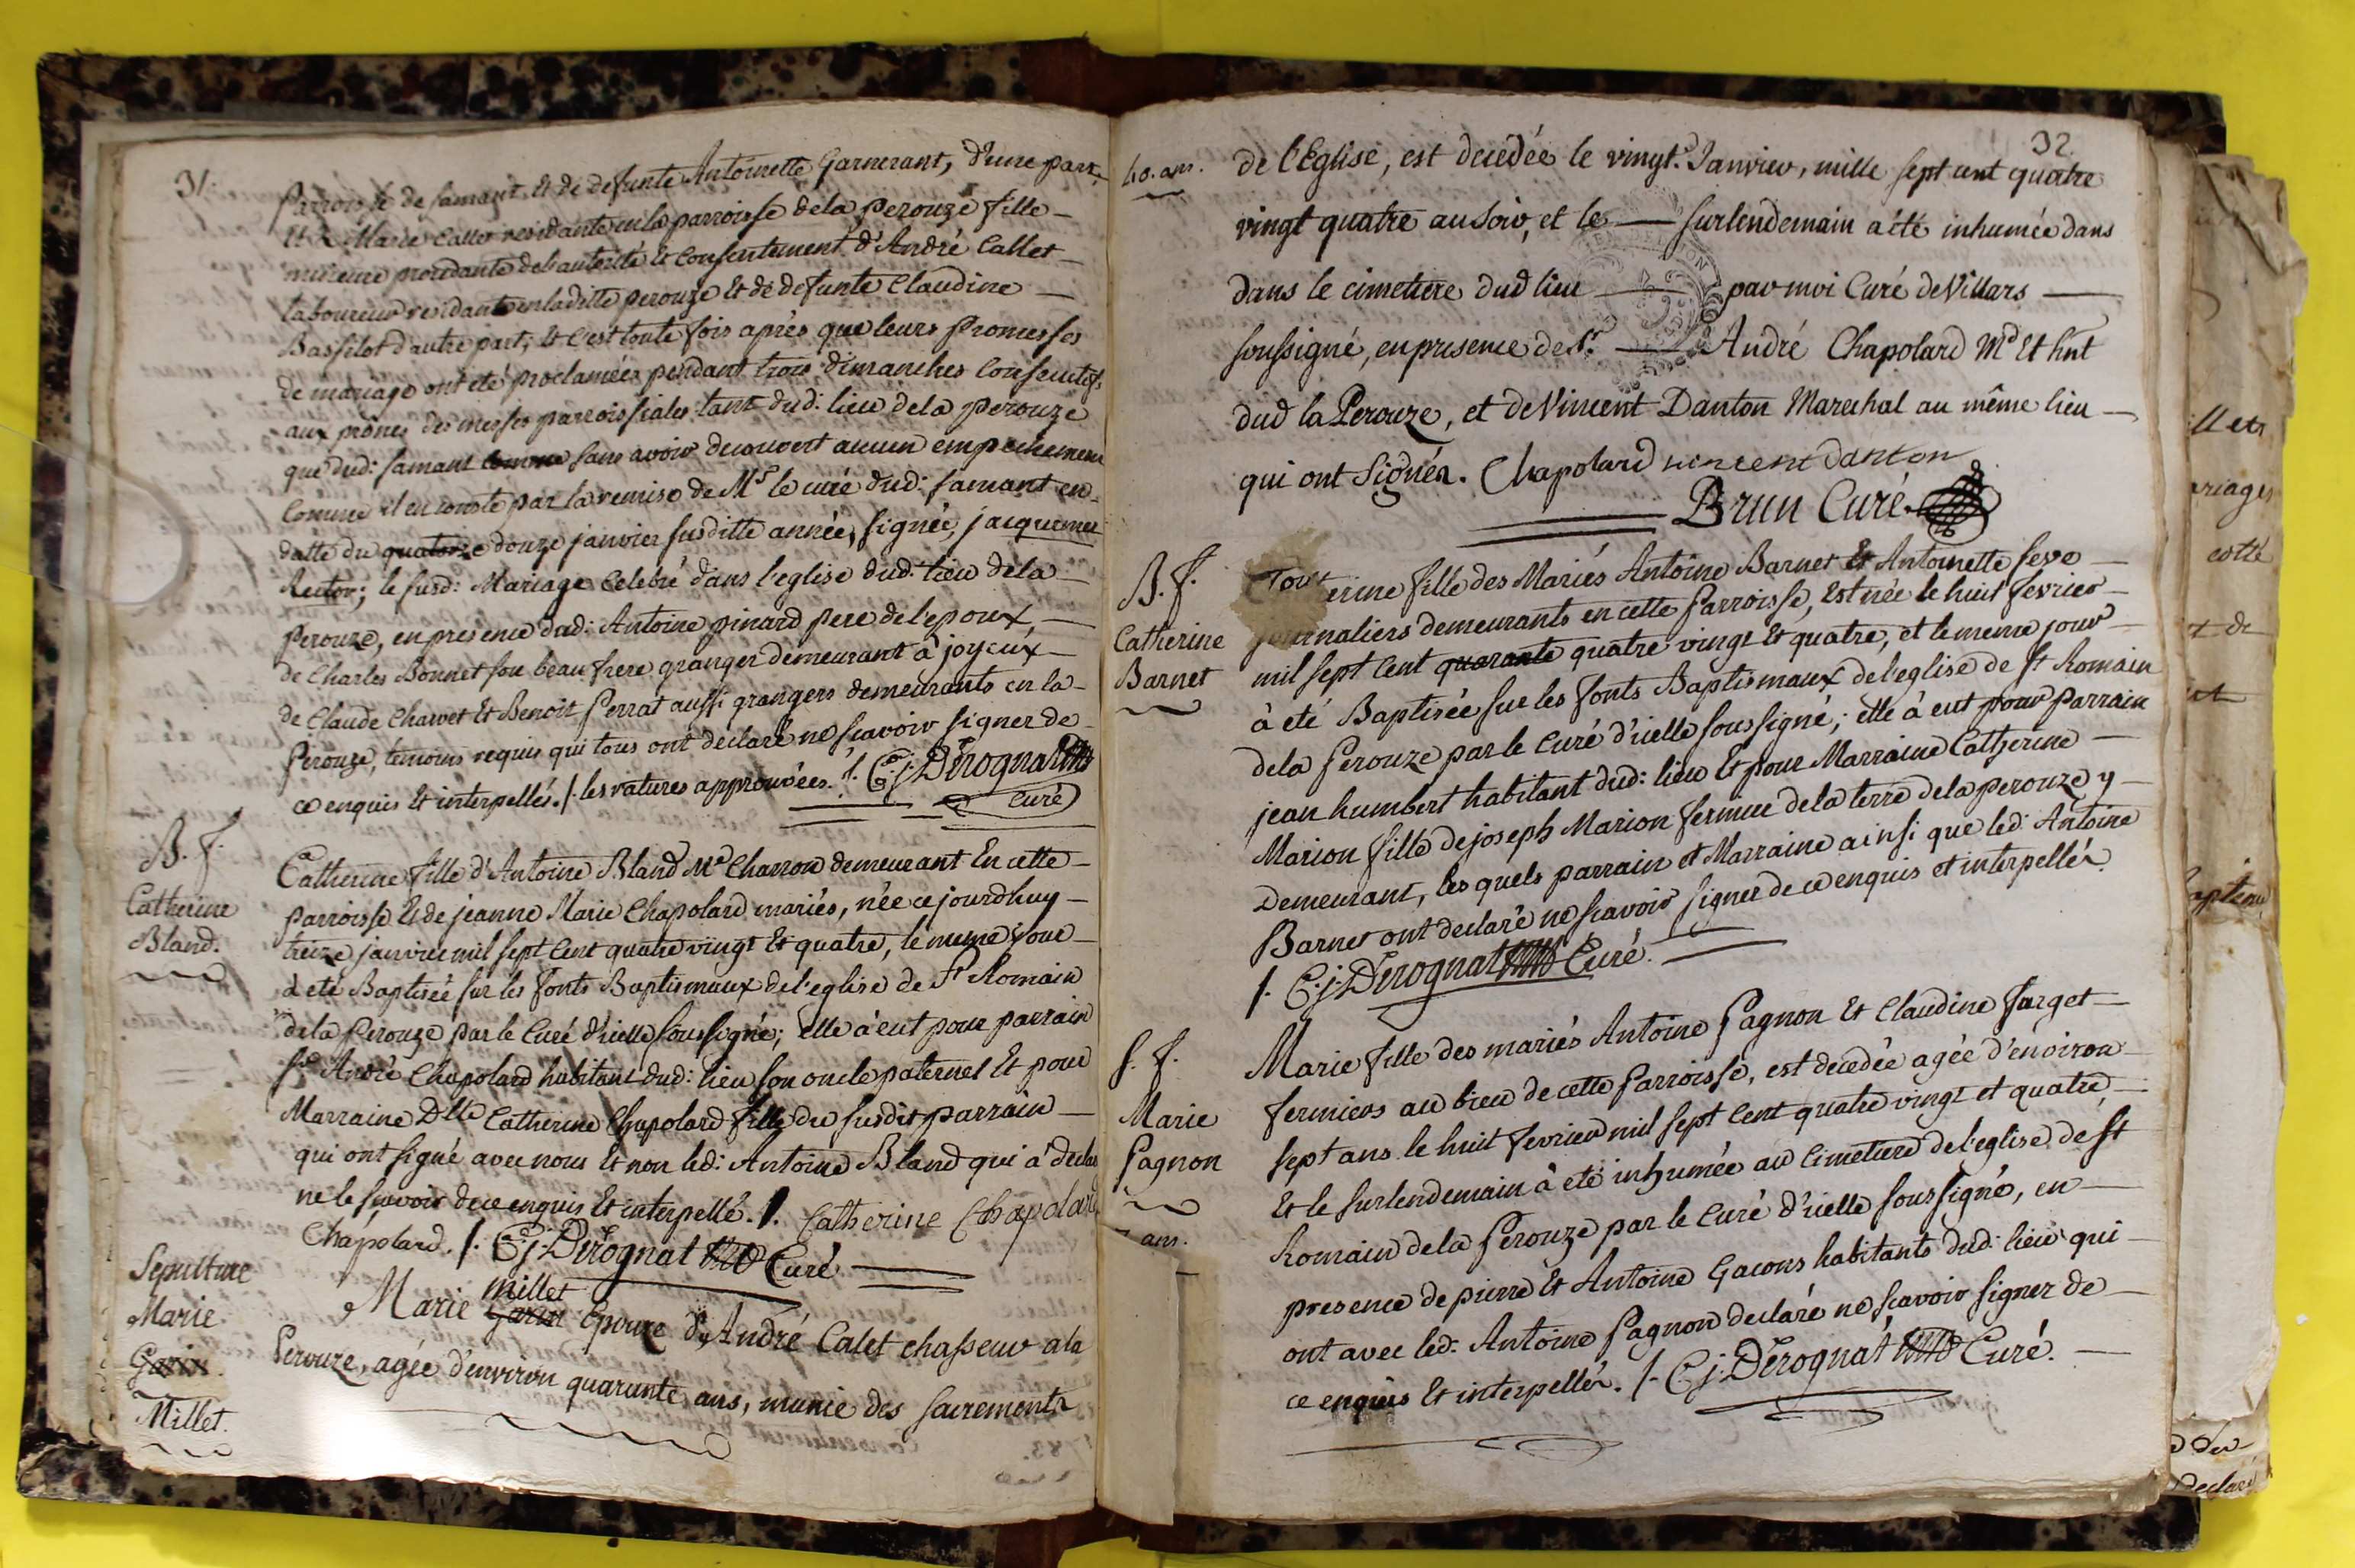 31.
Parroisse de samant. Et de defunte Antoinette Garnerant, d'une part.
Et & Marie Callet residante en la parroisse dela perouze fille
mineure procedante de l'autorité et consentement d'André Callet
laboureur residant en laditte perouze Et de defunte Claudine
Bassilot d'autre part; Et c'est toute fois après que leurs Promesses
de mariage ont été proclamées pendant trois dimanches consecutifs
aux prônes des messes parroissiales tant dud: lieu dela perouze
que dud: samant sans avoir decouvert aucun empechement
Comme il en conste par la remise de Mr le curé dud: samant en
datte du quatorze douze janvier susditte année, signée, jacquemet
Rector; le susd: Mariage Celebré dans l'eglise dud: lieu dela
Perouze, en presence dud: Antoine pinard pere de l'epoux,
de Charles Bonnet son beau frere granger demeurant à joyeux
de Claude Charvet Et Benoit Perrat aussi grangers demeurants en la
Perouze, temoins requis qui tous ont declaré ne scavoir signer de
ce enquis Et interpellés. /. les ratures approuvées. /. C: j: Derognat
curé
B. f.
Catherine
Bland.
Catherine fille d'Antoine Bland Me Charron demeurant En cette
parroisse Et de jeanne Marie Chapolard mariés, née ce jourdhuy
treize janvier mil sept Cent quatre vingt Et quatre, le meme jour
à eté Baptisée sur les fonts Baptismaux de l'eglise de St Romain
dela Perouze par le Curé d'icelle soussigné; elle à eut pour parrain
Sr André Chapolard habitant dud: lieu son oncle paternel Et pour
Marraine Dlle Catherine Chapolard fille du susdit parrain
qui ont signé avec nous Et non led: Antoine Bland qui à declar
ne le scavoir de ce enquis Et interpellé. /. Catherine Chapolard
Chapolard. /. C: j: Derognat Curé
Sepulture
Marie
Garin.
Millet.
millet
Marie Garin Epouze d'André Calet chasseur a la
Perouze, agée d'environ quarante ans, munie des sacrements
32.
40. ans.
de l'Eglise, est decedée le vingt. Janvier, mille sept cent quatre
vingt quatre au soir, et le surlendemain a été inhumée dans
dans le cimetiere dud lieu par moi Curé de Villars
soussigné, en presence de Sr. André Chapolard Md Et hnt
dud la Perouze, et de Vincent Danton Marechal au même lieu
qui ont signés. Chapolard vincent danton
Brun Curé.
B. f.
Catherine
Barnet
erine fille des Mariés Antoine Barnet Et Antoinette seve
journaliers demeurants en cette Parroisse, Est née le huit fevrier
mil sept Cent quarante quatre vingt Et quatre, et le meme jour
à eté Baptisée sur les fonts Baptismaux de l'eglise de St Romain
dela Perouze par le Curé d'icelle soussigné; elle à eut pour parrain
jean humbert habitant dud: lieu Et pour Marraine Catherine
Marion fille de joseph Marion fermier dela terre dela perouze y
Demeurant, les quels parrain et Marraine ainsi que led: Antoine
Barnet ont declaré ne scavoir signer de ce enquis et interpellés.
/. C: j: Derognat Curé.
S. f.
Marie
Pagnon
7 ans.
Marie fille des mariés Antoine Pagnon Et Claudine farget
fermiers au bieu de cette Parroisse, est decedée agée d'environ
sept ans le huit fevrier mil sept Cent quatre vingt et quatre,
Et le surlendemain à eté inhumée au Cimetiere de l'eglise de St
Romain dela Perouze par le Curé d'icelle soussigné, en
presence de pierre Et Antoine Gacons habitants dud: lieu qui
ont avec led: Antoine Pagnon declaré ne scavoir signer de
ce enquis Et interpellés. /. C: j: Derognat Curé.